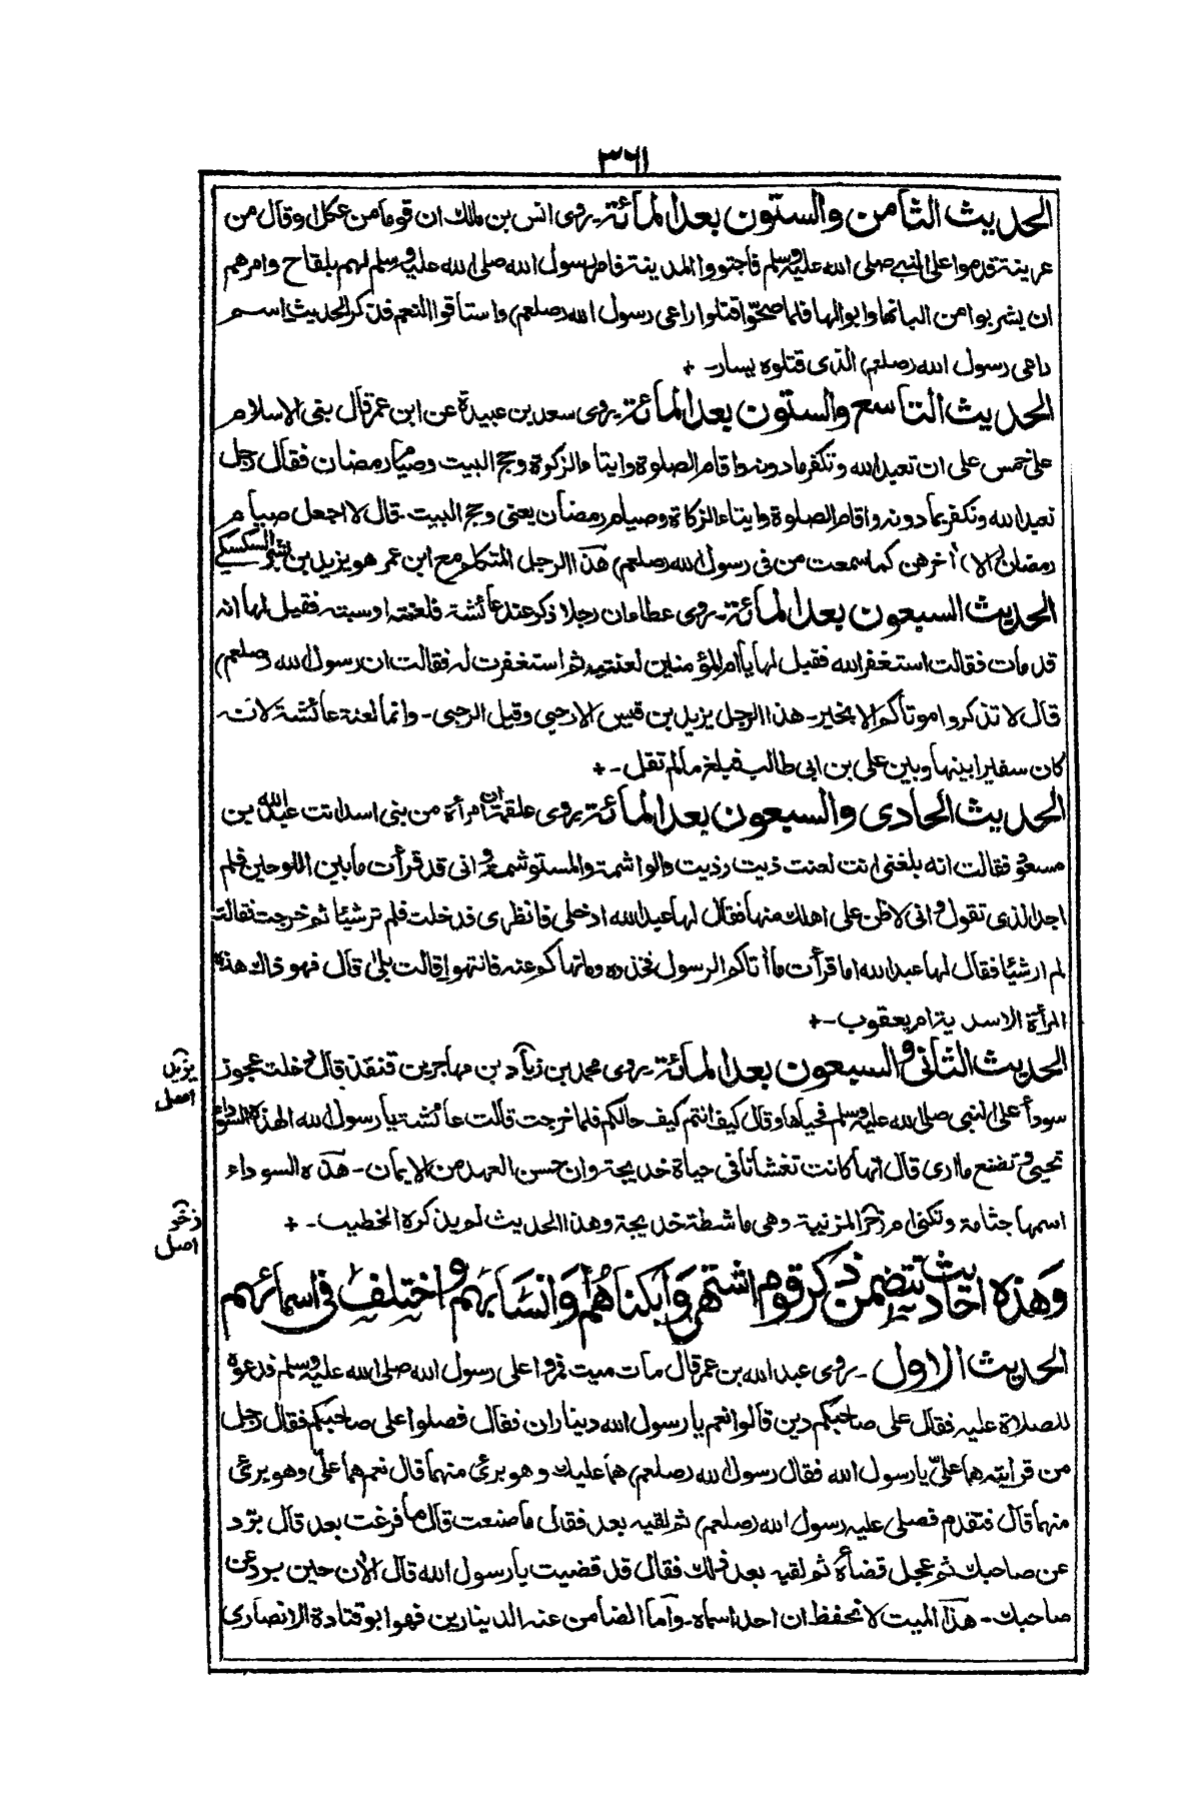 ٣٦١
الحديث الثامن والستون بعد المائة۔ روى انس بن مالك ان قوما من عكل او قال من
عرينة قدموا على النبي صلى الله عليه وسلم فاجتووا المدينة فامر رسول الله صلى الله عليه وسلم لهم بلقاح وامرهم
ان يشربوا من البانها وابوالها فلما صحّوا قتلوا راعى رسول الله (صلعم) واستاقوا النعم فذكر الحديث اسم
راعى رسول الله (صلعم) الذى قتلوه يسار۔ +
الحديث التاسع والستون بعد المائة۔ روى سعد بن عبيدة عن ابن عمر قال بنى الاسلام
على خمس على ان تعبد الله وتكفر مادونه واقام الصلوة وايتاء الزكوة وحج البيت وصيام رمضان فقال رجل
تعبد الله وتكفر بما دونه واقام الصلوة وايتاء الزكاة وصيام رمضان يعنى وحج البيت۔ قال لا اجعل صيام
رمضان الا أخرهن كما سمعت من فى رسول الله (صلعم) هذا الرجل المتكلم مع ابن عمر هو يزيد بن بشر السكسكي
الحديث السبعون بعد المائة۔ روى عطاء ان رجلا ذكر عند عائشة فلعنته او سبته فقيل لها انه
قد مات فقالت استغفر الله فقيل لها يا ام المؤمنين لعنتيه ثم استغفرت له فقالت ان رسول الله (صلعم)
قال لا تذكروا موتاكم الا بخير۔ هذا الرجل يزيد بن قيس الارحبي وقيل الرحبى۔ وانما لعنته عائشة لانه
كان سفيرا بينها وبين على بن ابى طالب فبلغ مالم تقل۔ +
الحديث الحادى والسبعون بعد المائة۔ روى علقمة ان امرأة من بنى اسد اتت عبد الله بن
مسعود فقالت انه بلغنى انك لعنت ذيت وذيت والواشمة والمستوشمة وانى قد قرأت ما بين اللوحين فلم
اجد الذى تقول وانى لاظن على اهلك منها فقال لها عبد الله ادخلى فانظرى فدخلت فلم تر شيئا ثم خرجت فقالت
لم ار شيئا فقال لها عبد الله اما قرأت ما أتاكم الرسول فخذوه وما نهاكم عنه فانتهوا قالت بلى قال فهو ذاك هذه
المرأة الاسدية ام يعقوب۔ +
الحديث الثانى والسبعون بعد المائة۔ روى محمد بن زياد بن مهاجر بن قنفذ قال دخلت عجوز
سودأ على النبى صلى الله عليه وسلم فحياها وقال كيف انتم كيف حالكم فلما خرجت قالت عائشة يا رسول الله الهذه السوداء
تحيى وتصنع ما ارى قال انها كانت تغشانا فى حياة خديجة وان حسن العهد من الايمان۔ هذه السوداء
اسمها جثامة وتكنى ام زفر المزنية وهى ماشطة خديجة وهذا الحديث لم يذكره الخطيب۔ +
يزيد
اصل
زخر
اصل
وهذه احاديث تتضمن ذكر قوم اشتهروا بكناهم وانسابهم واختلف فى اسمائهم
الحديث الاول۔ روى عبد الله بن عمر قال مات ميت فمروا على رسول الله صلى الله عليه وسلم فدعوه
للصلاة عليه فقال على صاحبكم دين قالوا نعم يا رسول الله ديناران فقال فصلوا على صاحبكم فقال رجل
من قرابته هما علىّ يا رسول الله فقال رسول الله (صلعم) هما عليك وهو برئ منهما قال نعم هما علىّ وهو برئ
منهما قال فتقدم فصلى عليه رسول الله (صلعم) ثم لقيه بعد فقال ما صنعت قال ما فرغت بعد قال برّد
عن صاحبك ثم عجل قضأه ثم لقيه بعد ذلك فقال قد قضيت يا رسول الله قال الأن حين بردعن
صاحبك۔ هذا الميت لا نحفظ ان احدا سماه۔ وأما الضامن عنه الدينارين فهو ابو قتادة الانصارى